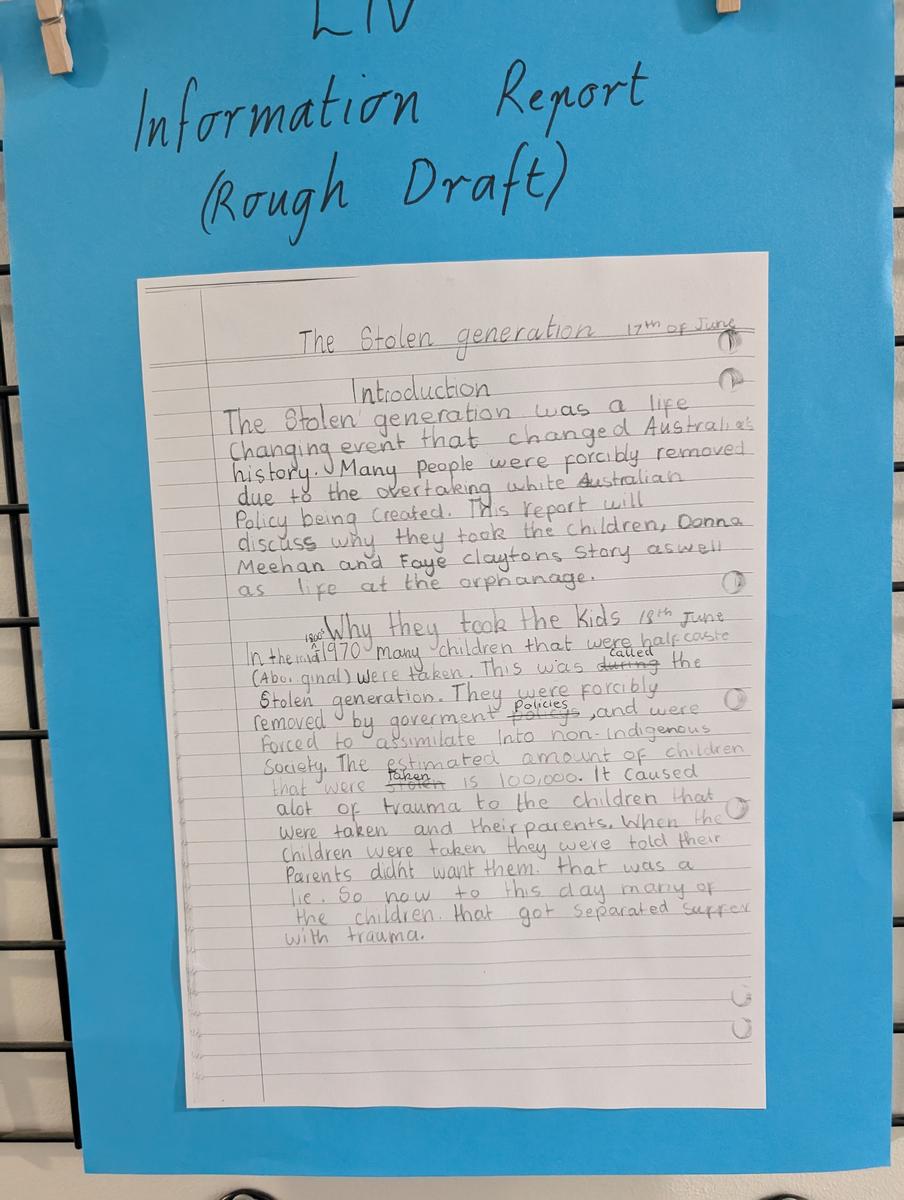 LIV
Information Report
(Rough Draft)
The Stolen generation 17th of June
Introduction
The Stolen generation was a life
Changing event that changed Australias
history. Many people were forcibly removed
due to the overtaking white Australian
Policy being Created. This report will
discuss why they took the children, Donna
Meehan and Faye Claytons Story aswell
as life at the orphanage.
Why they took the Kids 18th June
1800s
In the mid 1970 many children that were half caste
(Abor ginal) were taken. This was during called the
Stolen generation. They were forcibly
removed by goverment policys Policies, and were
forced to assimilate into non-indigenous
Society. The estimated amount of children
that were stolen taken is 100,000. It Caused
alot of trauma to the children that
were taken and their parents. When the
Children were taken they were told their
Parents didn't want them. that was a
lie. So now to this day many of
the children that got separated suffer
with trauma.